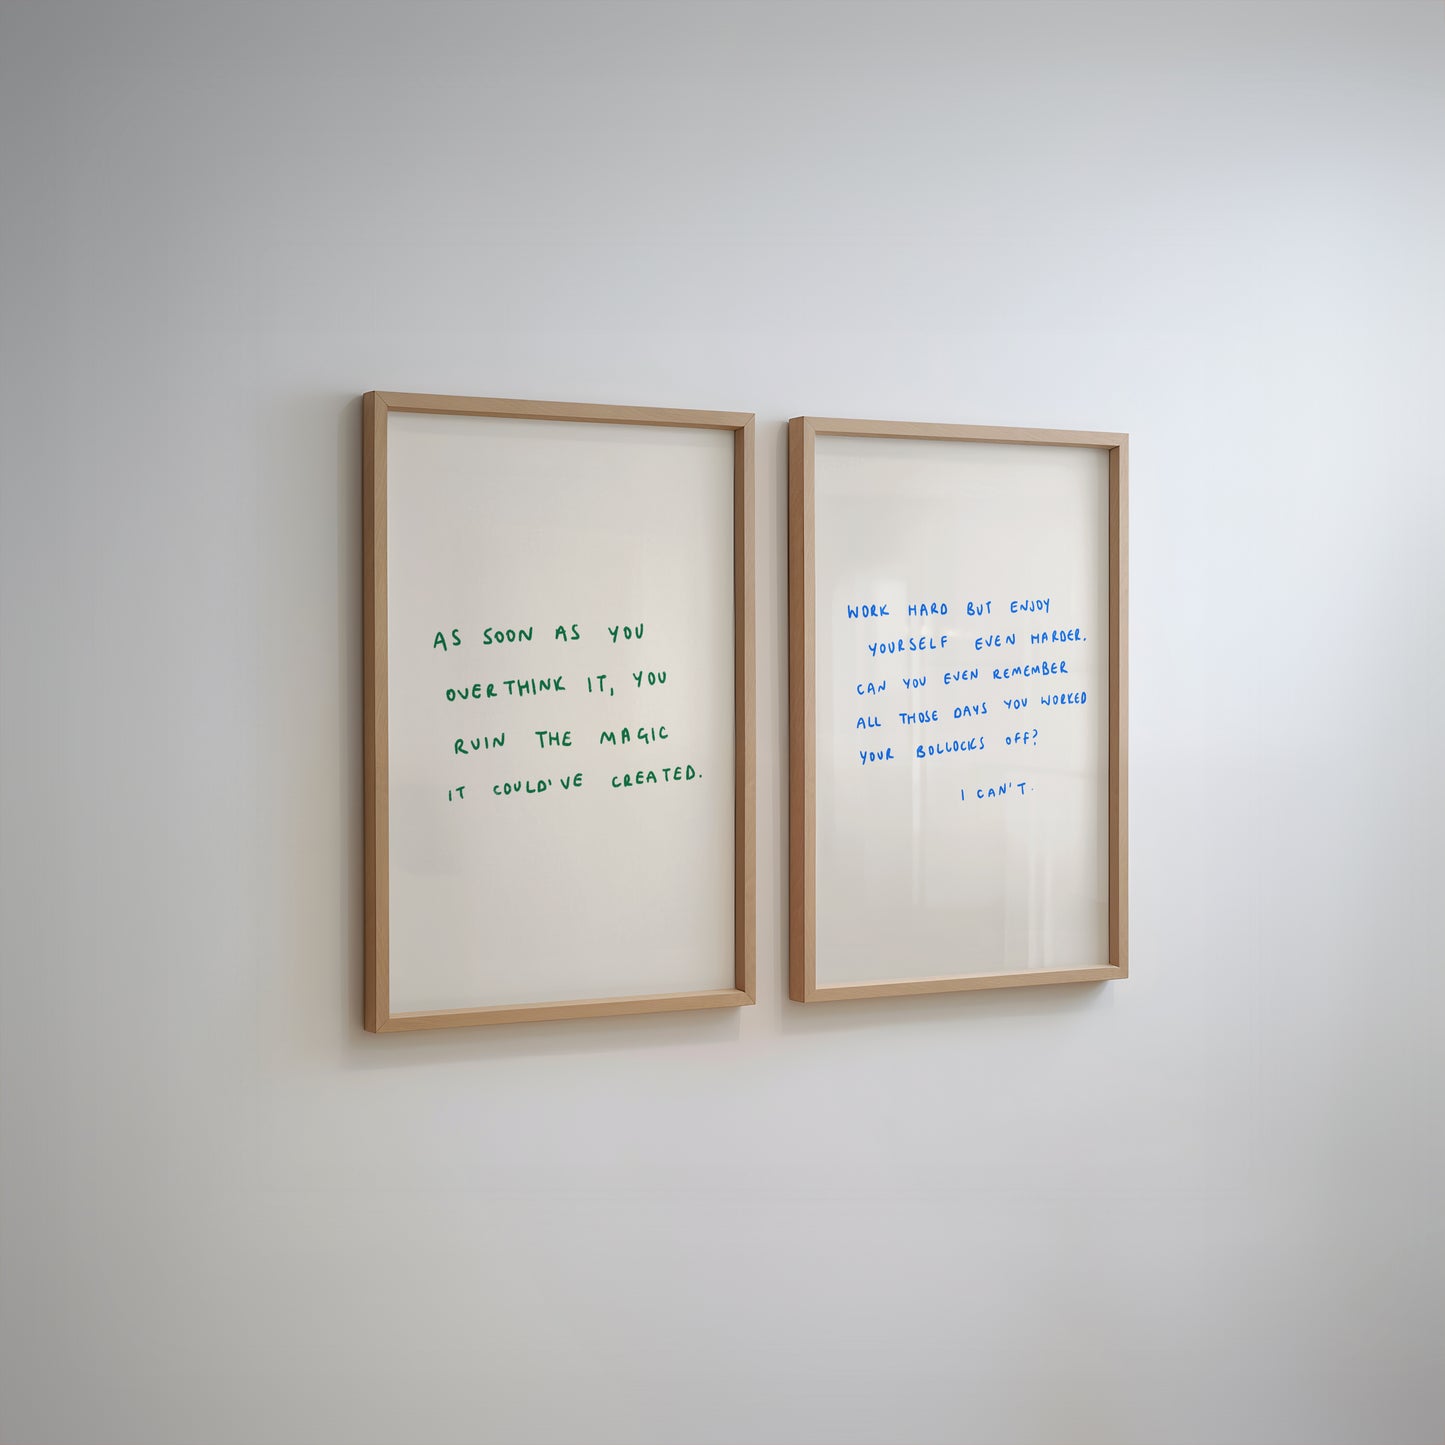 AS SOON AS YOU
OVERTHINK IT, YOU
RUIN THE MAGIC
IT COULD'VE CREATED.
WORK HARD BUT ENJOY
YOURSELF EVEN HARDER.
CAN YOU EVEN REMEMBER
ALL THOSE DAYS YOU WORKED
YOUR BOLLOCKS OFF?
I CAN'T.